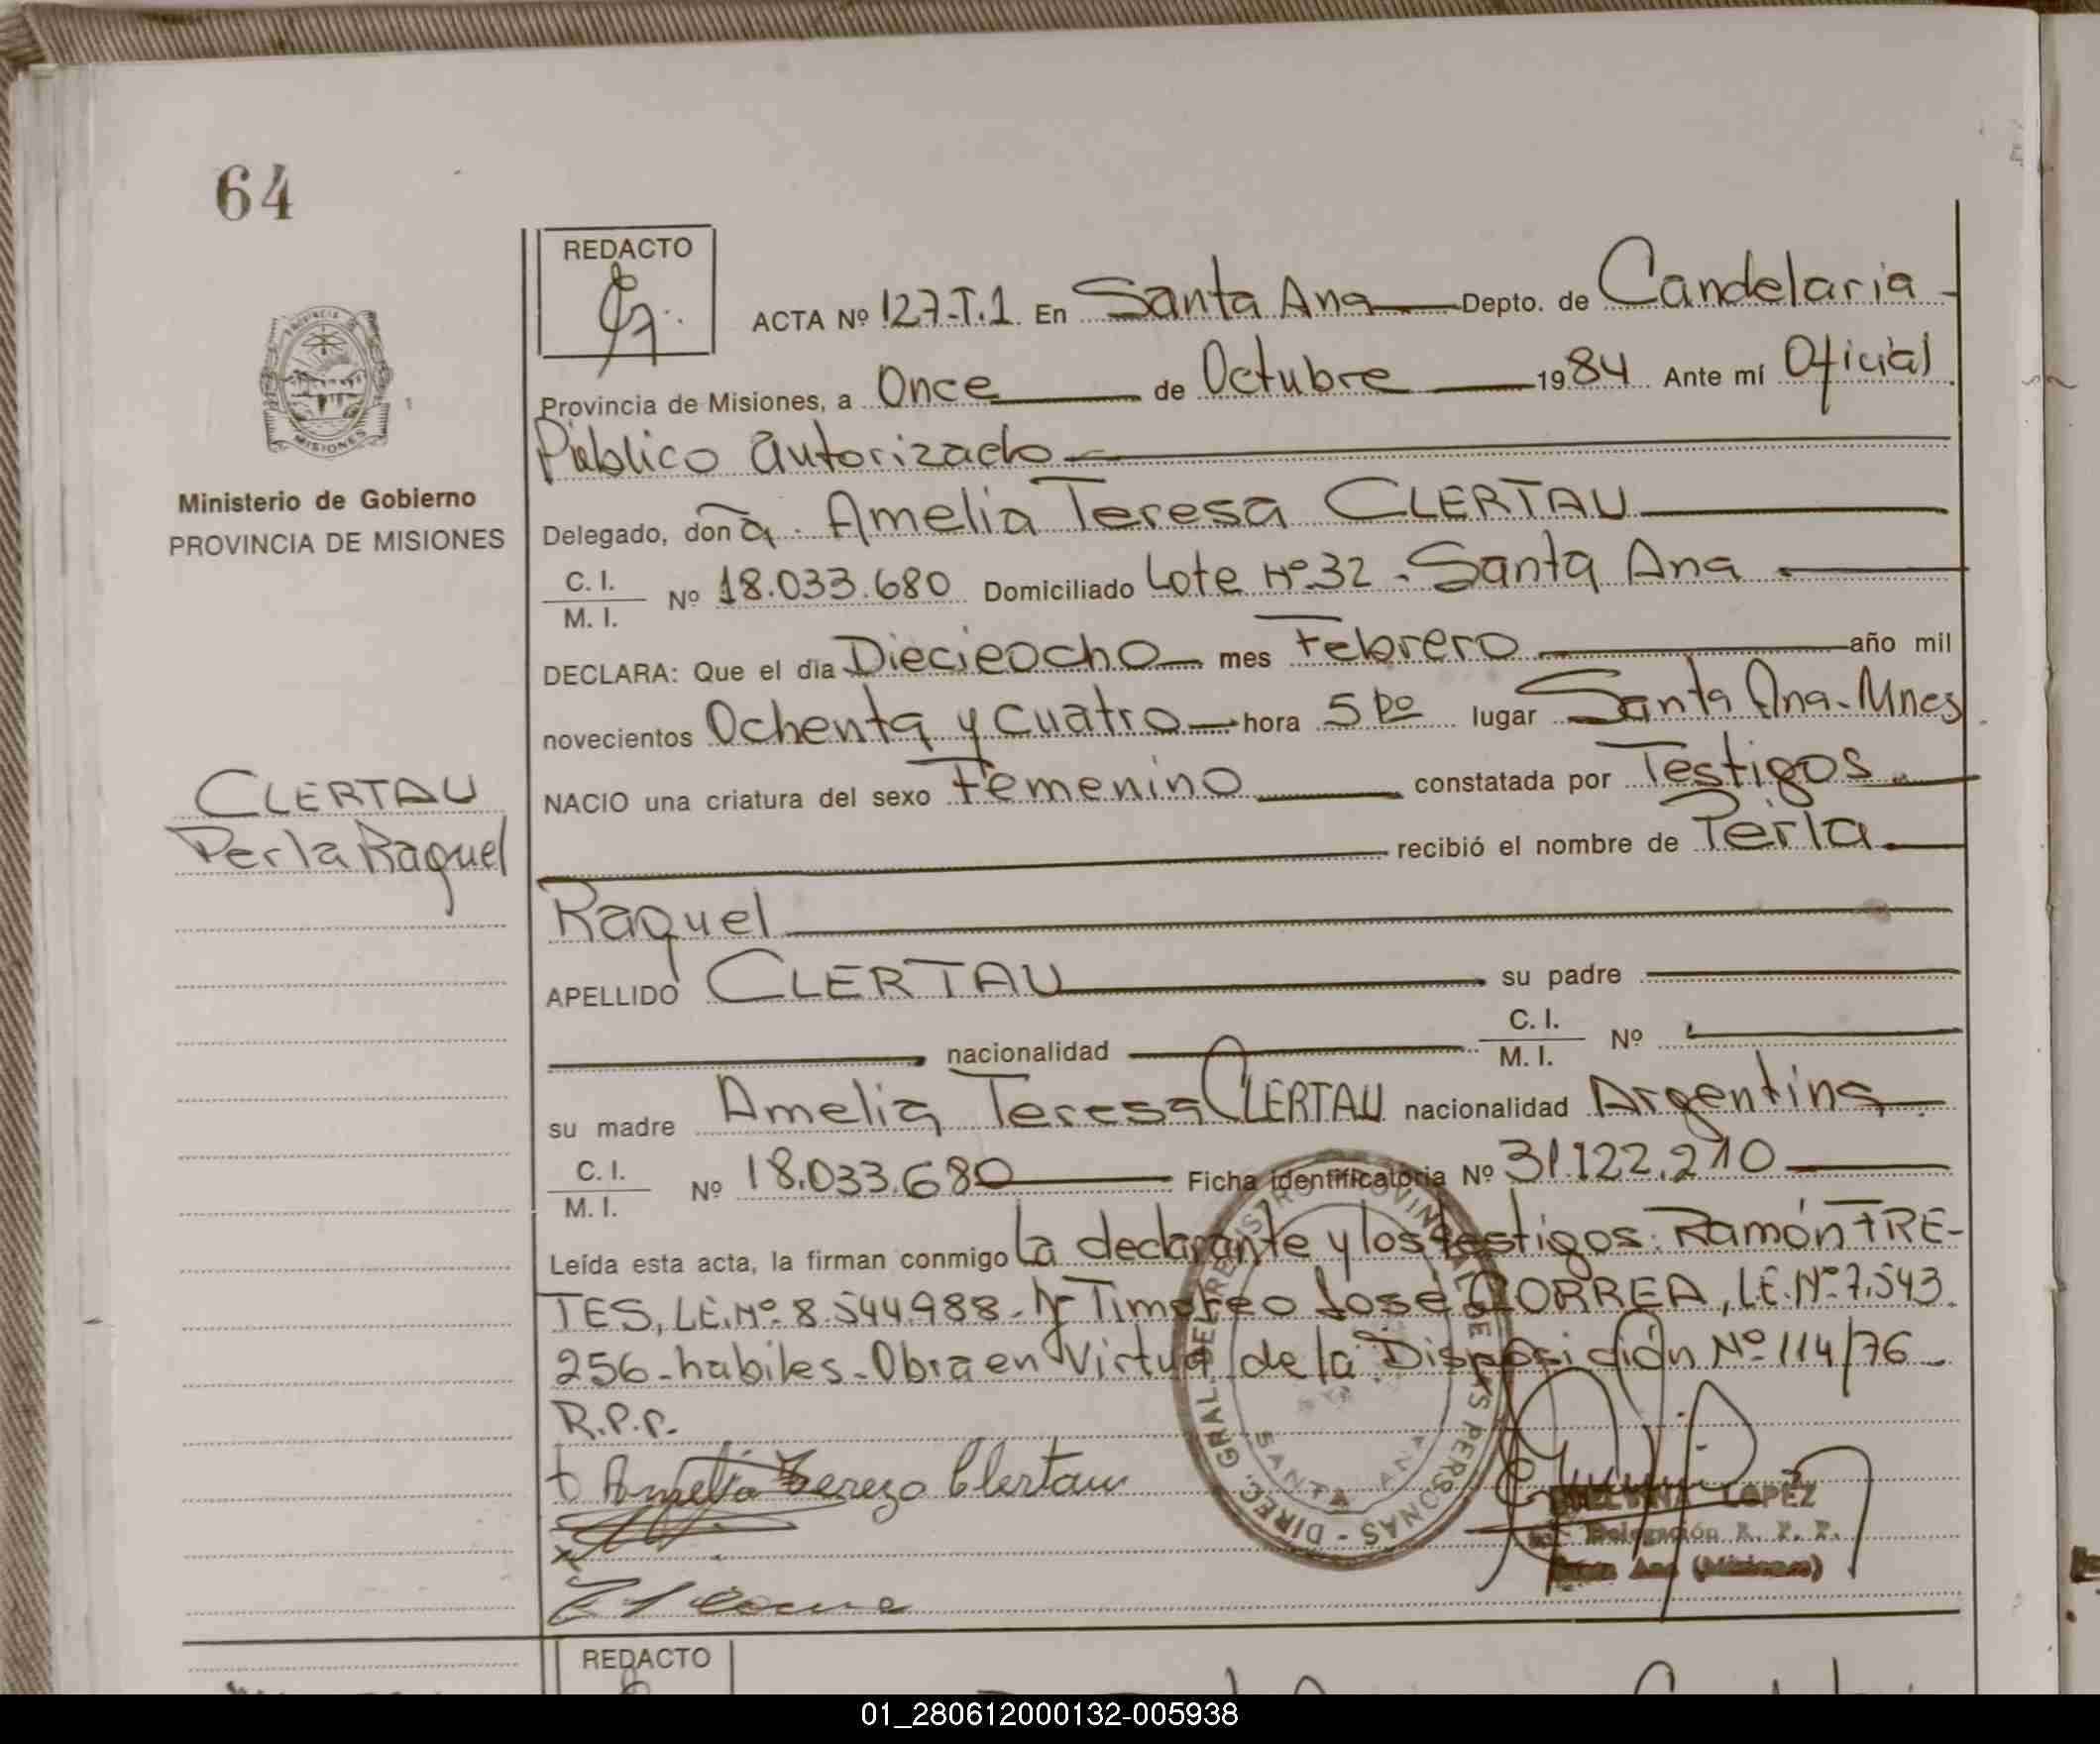 64
REDACTO
ACTA Nº 127-T.1 En Santa Ana Depto. de Candelaria
Provincia de Misiones, a Once de Octubre 1984 Ante mí Oficial
Público autorizado
Delegado, donã. Amelia Teresa CLERTAU
C. I.
M. I.
Nº 18.033.680 Domiciliado Lote Nº 32 - Santa Ana
DECLARA: Que el día Diecieocho mes Febrero año mil
novecientos Ochenta y cuatro hora 5 lugar Santa Ana - Mnes
NACIO una criatura del sexo Femenino constatada por Testigos
recibió el nombre de Perla
Raquel
APELLIDO CLERTAU su padre
nacionalidad C. I.
M. I.
Nº
su madre Amelia Teresa CLERTAU nacionalidad Argentina
C. I.
M. I.
Nº 18.033.680 Ficha identificatoria Nº 31.122.210
Leída esta acta, la firman conmigo La declarante y los testigos: Ramón FRE-
TES, LE. Nº 8.544.988 - y Timoteo José CORREA, LE. Nº 7.543.
256 - habiles - Obra en Virtud de la Disposición Nº 114/76
R.P.P.
Clertau
MISIONES
Ministerio de Gobierno
PROVINCIA DE MISIONES
CLERTAU
Perla Raquel
DIREC. GRAL. DEL REGISTRO PROVINCIAL DE LAS PERSONAS -
SANTA ANA
LOPEZ
Delegación R. P. P.
Ana (Misiones)
REDACTO
01_280612000132-005938